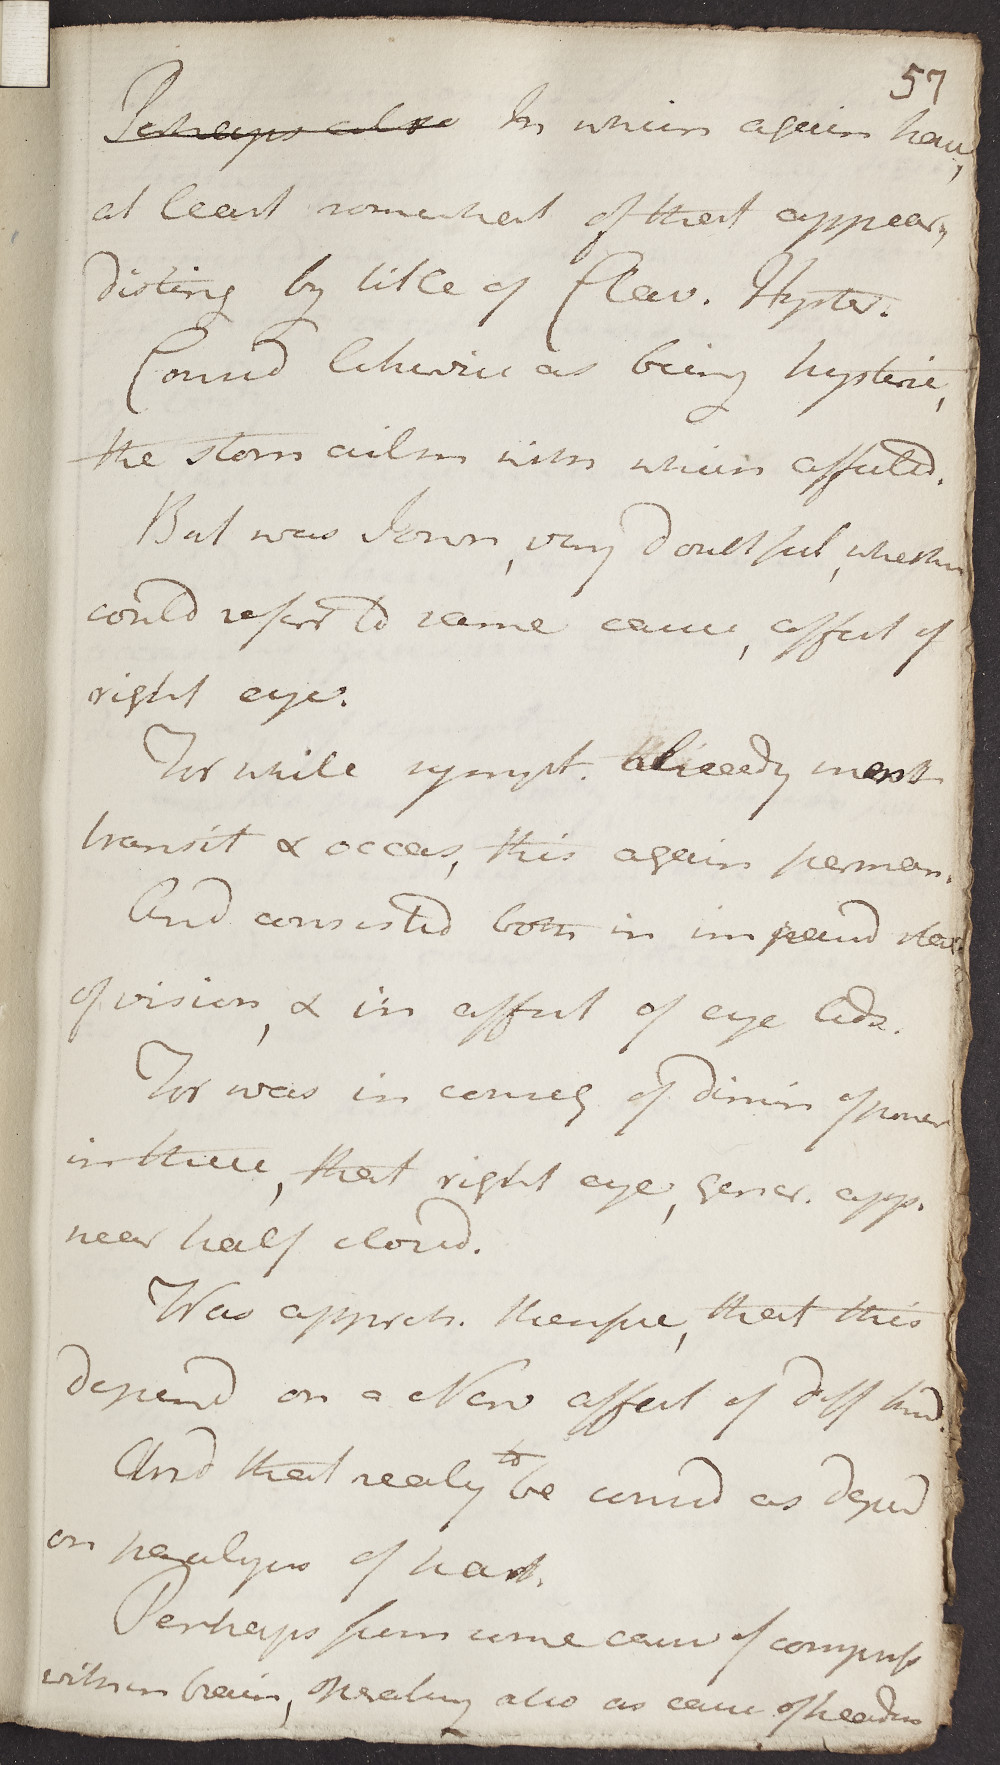 57
Perhaps also In which again have,
at least somewhat of that appear,
disting by title of Clav. Hyster.
Considd likewise as being hysteric,
the stom ailm with which affectd.
But was I own, very doubtful, whether
could referr to same cause, affect of
right eye.
For while sympt. already ment
transit & occas, this again perman.
And consistd both in impaird state
of vision, & in affect of eye lids.
For was in conseq of dimin of power
in these, that right eye, gener. app.
near half closd.
Was appreh. therefore, that this
depend on a Nerv affect of diff kind.
And that realy to be considd as depend
on paralysis of part.
Perhaps from some cause of compress
within brain, operating also as cause of headach